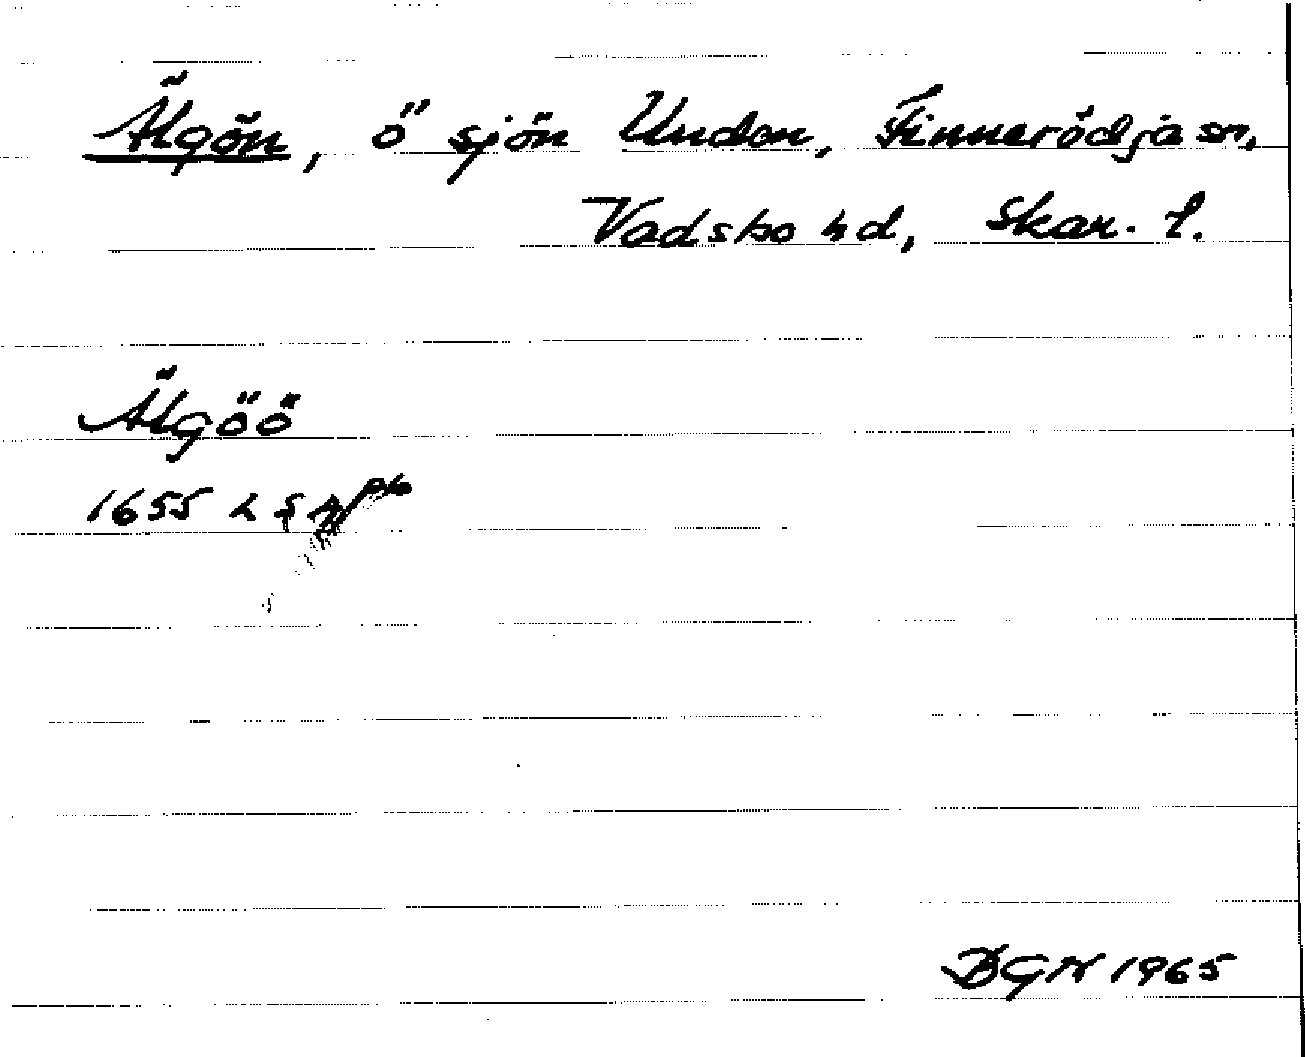 Älgön, ö sjön Unden, Finnerödja sn,
Vadsbo hd, Skar. l.
Älgöö
1655
BGN 1965